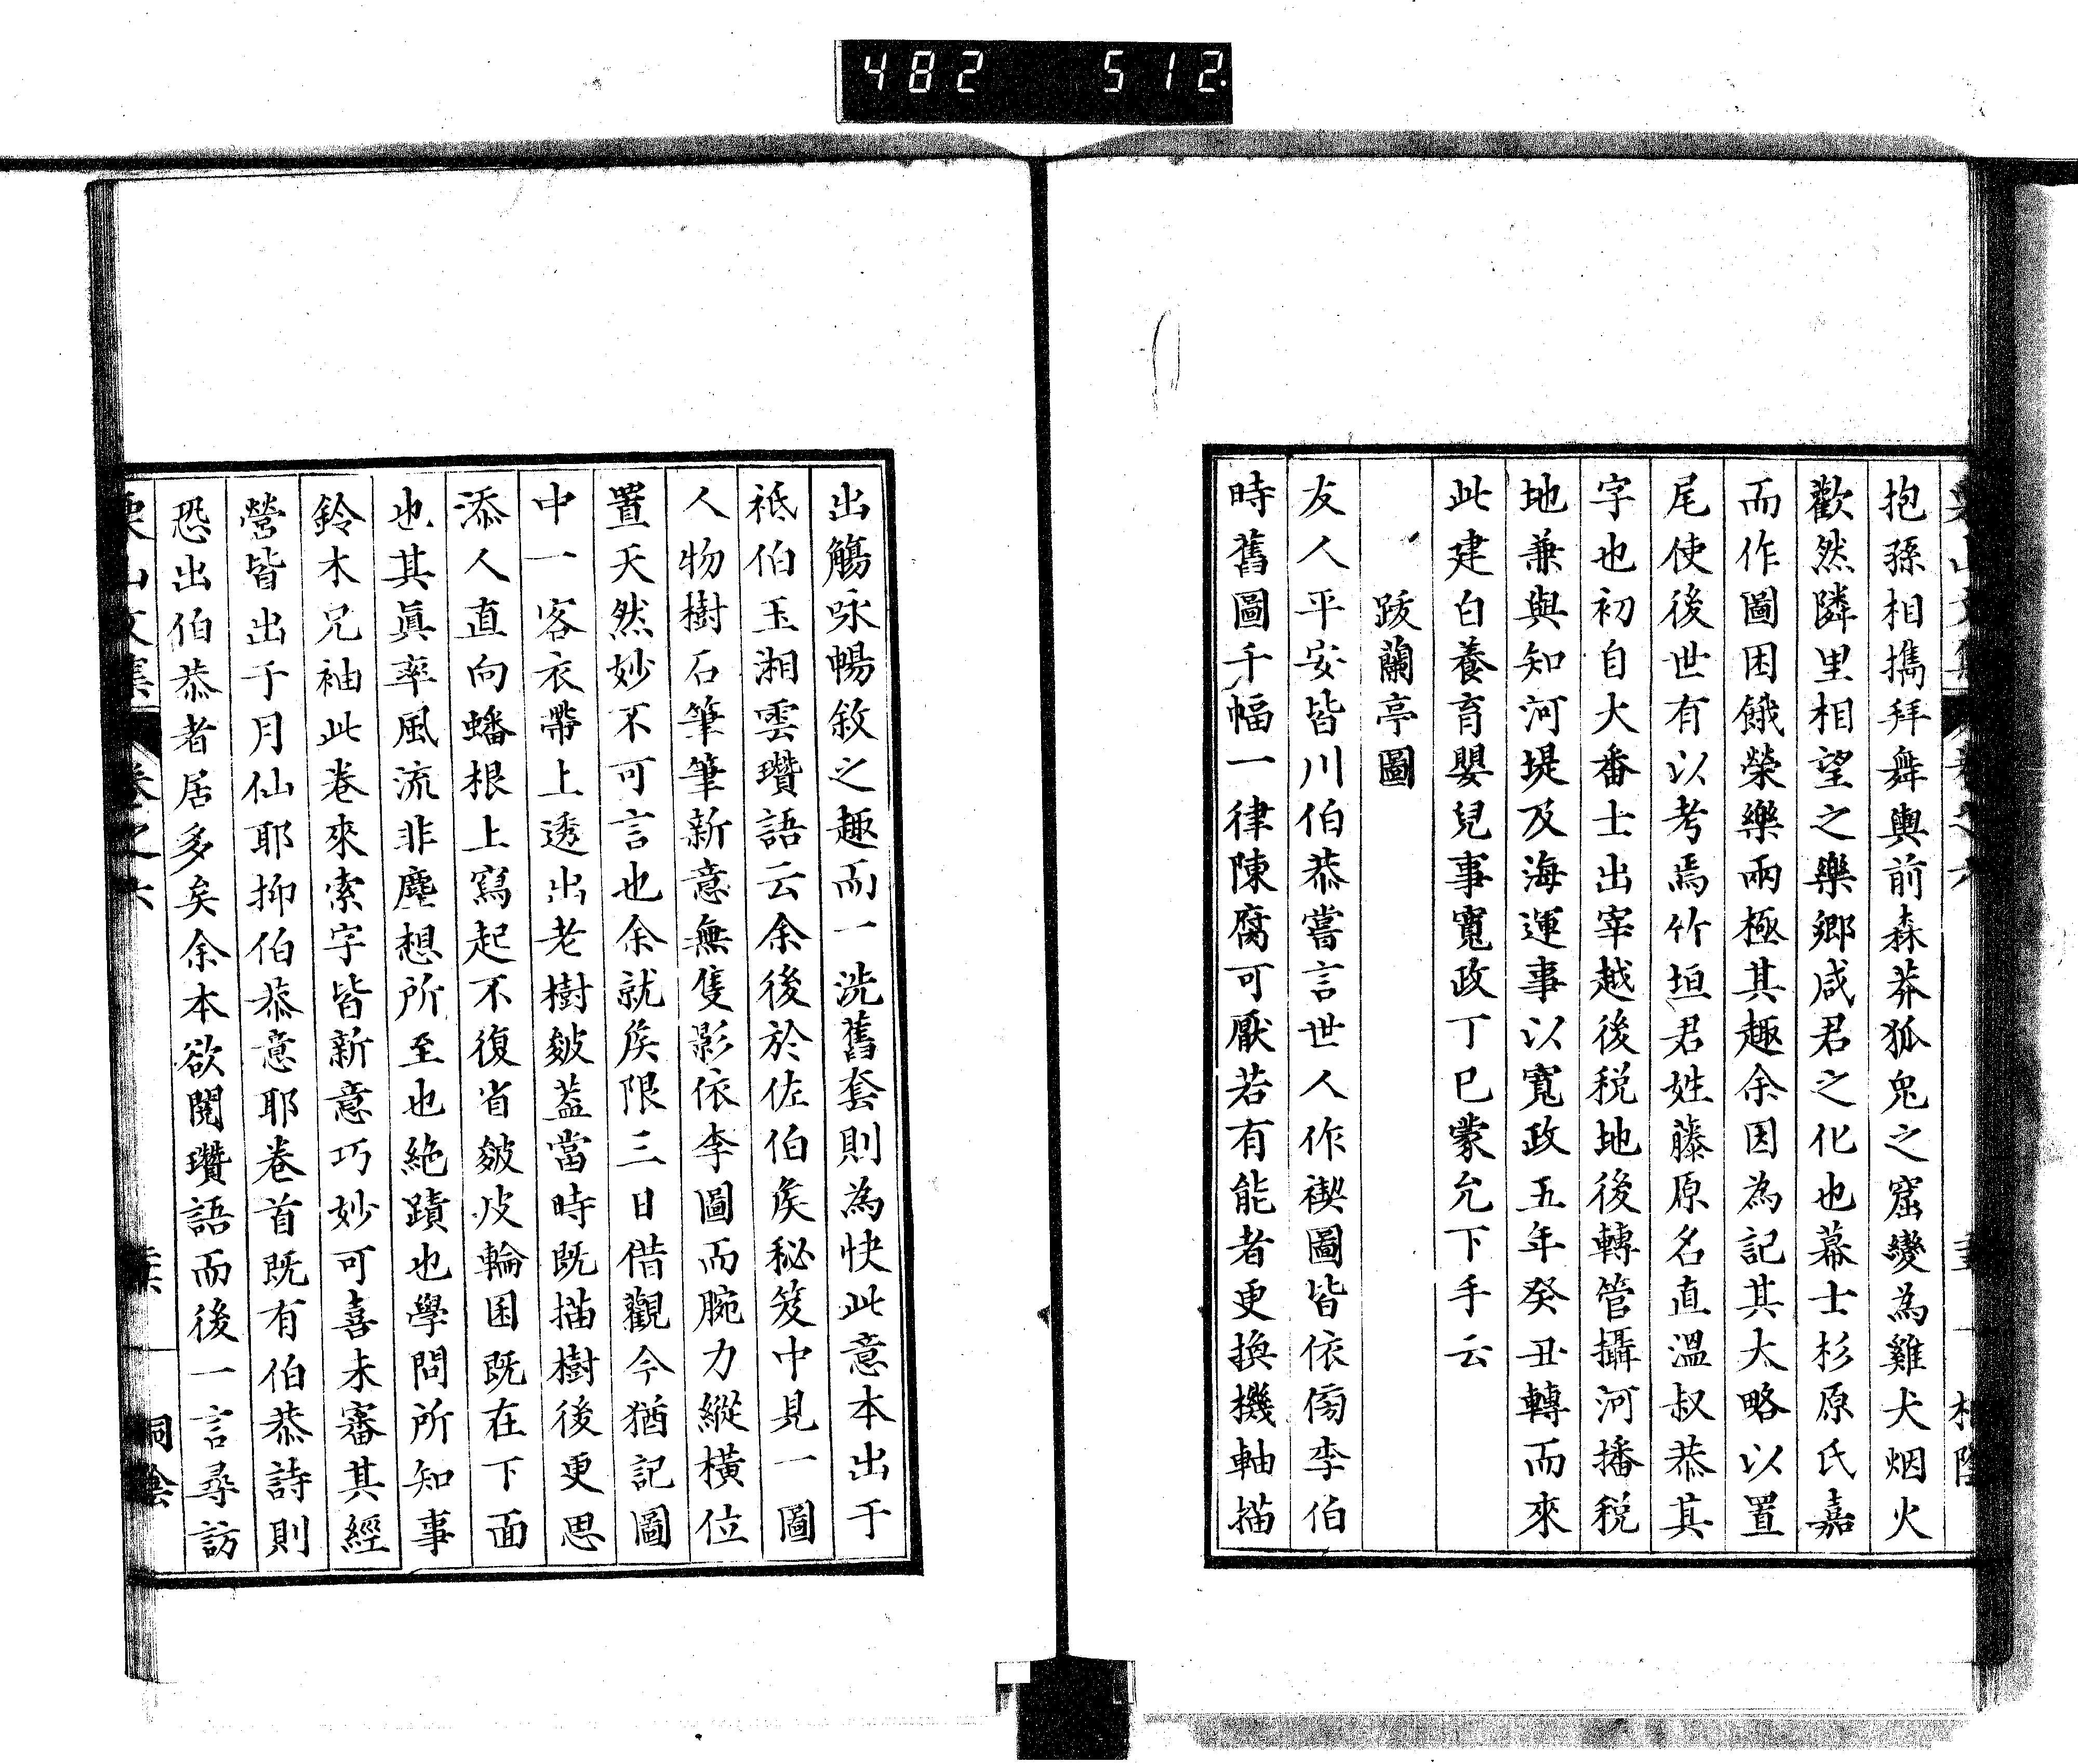 482 512
抱孫相攜拜舞輿前森莽狐兎之窟變為雞犬烟火
歡然隣里相望之樂鄉咸君之化也幕士杉原氏嘉
而作圖困餓榮樂兩極其趣余因為記其大略以置
尾使後世有以考焉竹垣君姓藤原名直溫叔恭其
字也初自大番士出宰越後税地後轉管攝河播税
地兼與知河堤及海運事以寬政五年癸丑轉而來
此建白養育嬰兒事寬政丁巳蒙允下手云
跋蘭亭圖
友人平安皆川伯恭嘗言世人作禊圖皆依傍李伯
時舊圖千幅一律陳腐可厭若有能者更換機軸描
出觴咏暢敘之趣而一洗舊套則為快此意本出于
祗伯玉湘雲瓚語云余後於佐伯矦秘笈中見一圖
人物樹石筆筆新意無隻影依李圖而腕力縱橫位
置天然妙不可言也余就矦限三日借觀今猶記圖
中一客衣帶上透出老樹皴蓋當時既描樹後更思
添人直向蟠根上寫起不復省皴皮輪囷既在下面
也其眞率風流非塵想所至也絶蹟也學問所知事
鈴木兄袖此卷來索字皆新意巧妙可喜未審其經
營皆出于月仙耶抑伯恭意耶卷首既有伯恭詩則
恐出伯恭者居多矣余本欲閱瓚語而後一言尋訪
栗山文集 卷之六